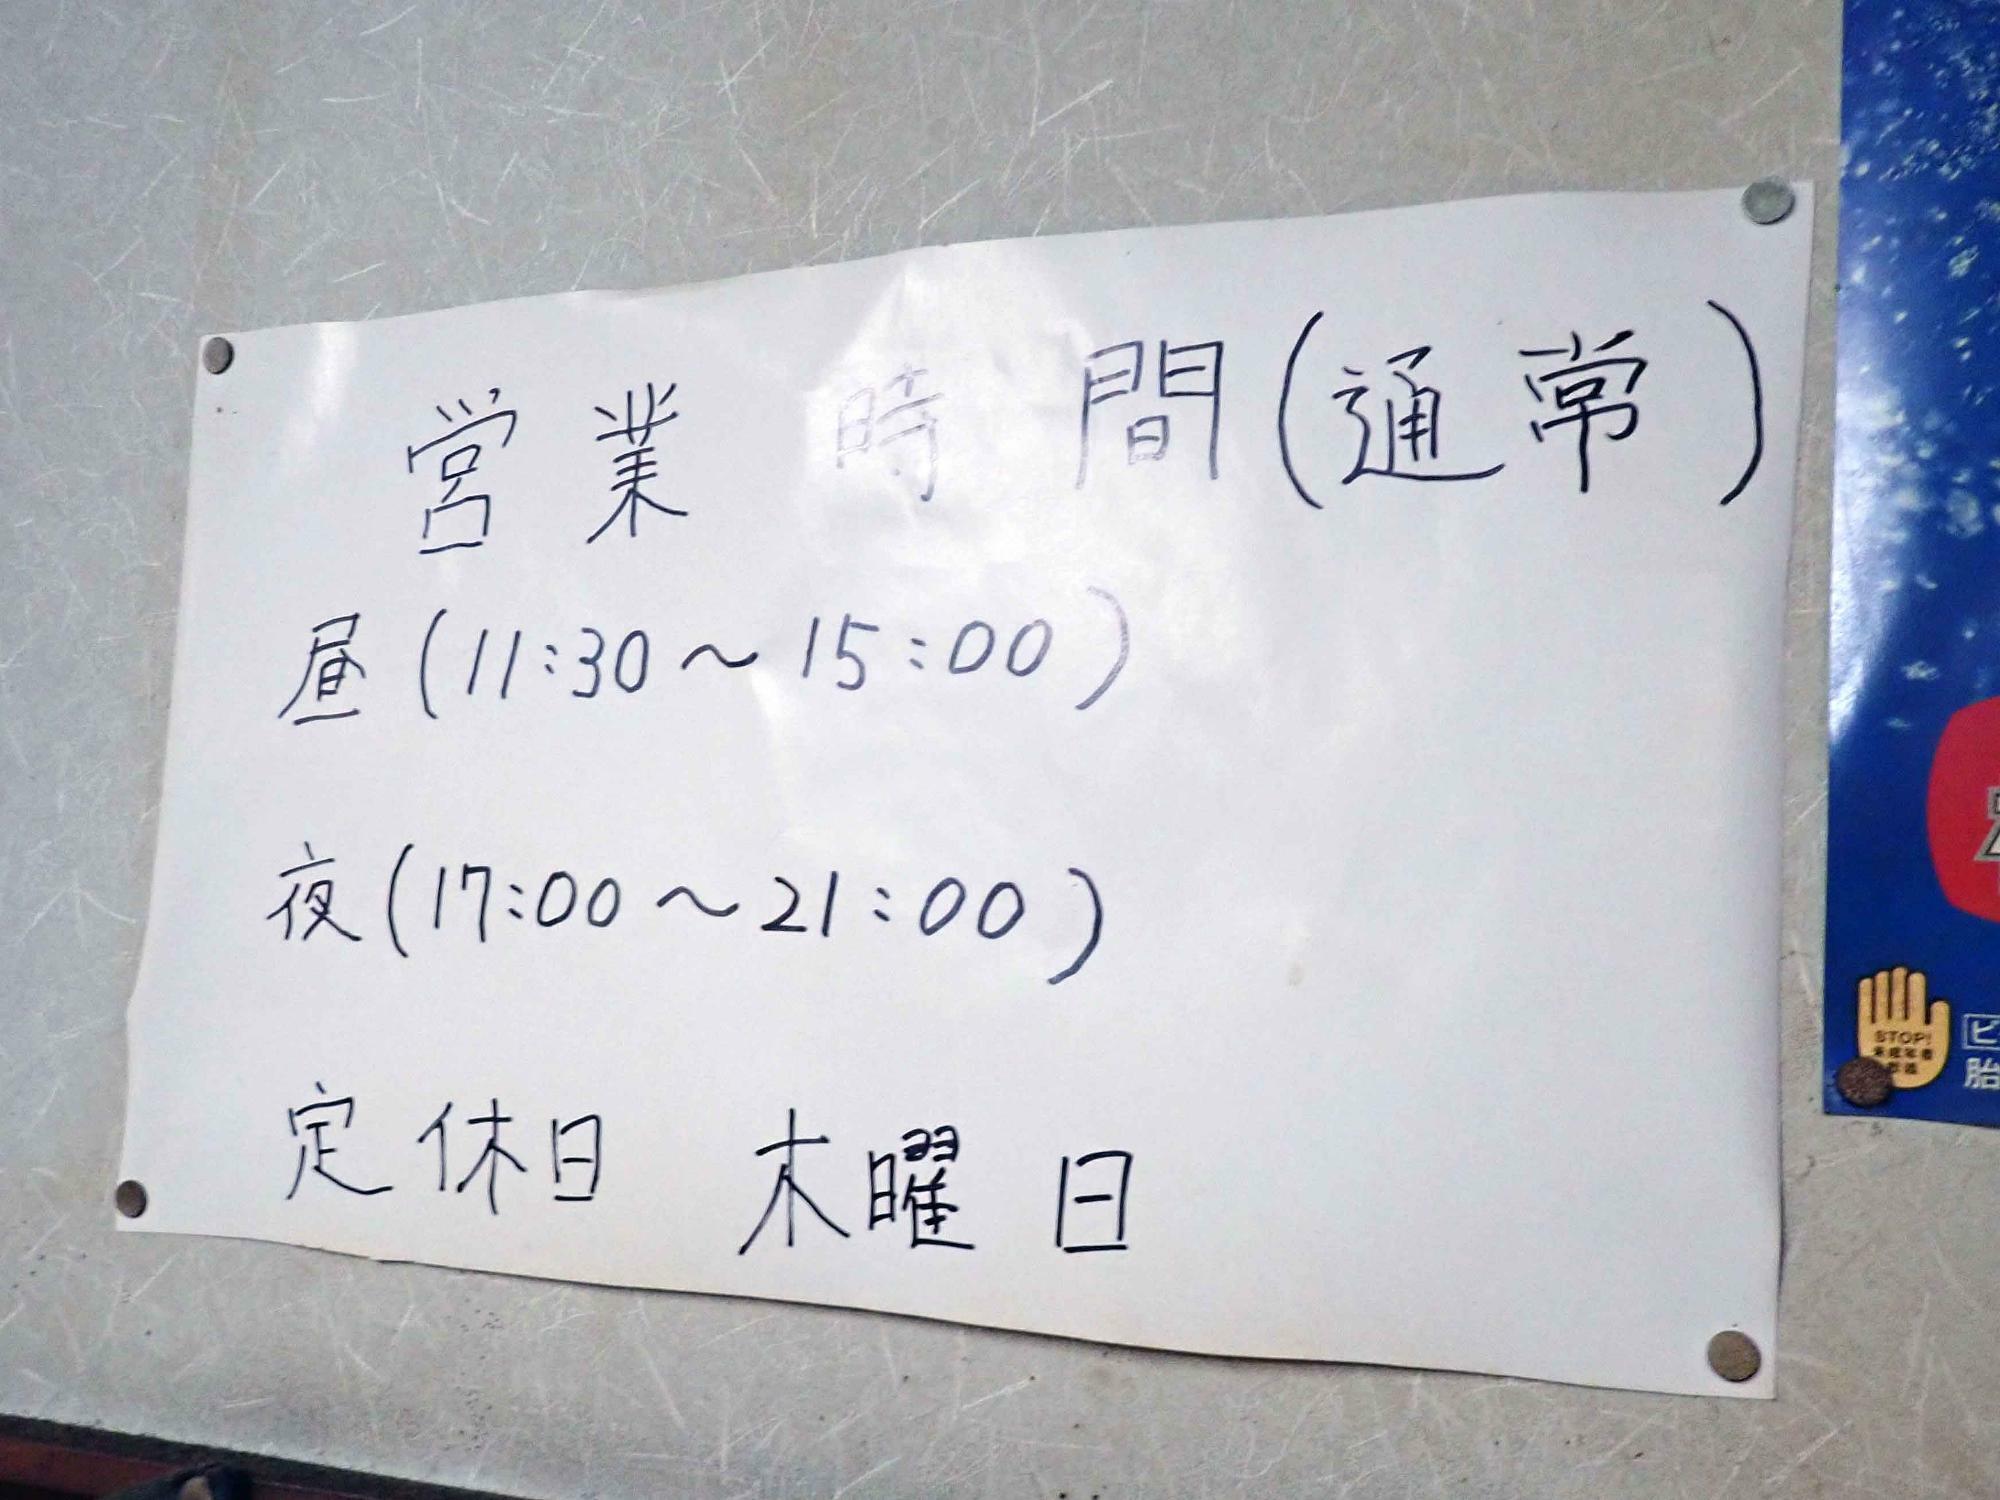 営業時間(通常)
昼(11:30～15:00)
夜(17:00～21:00)
定休日 木曜日
STOP!
未成年者
飲酒
ビ
胎